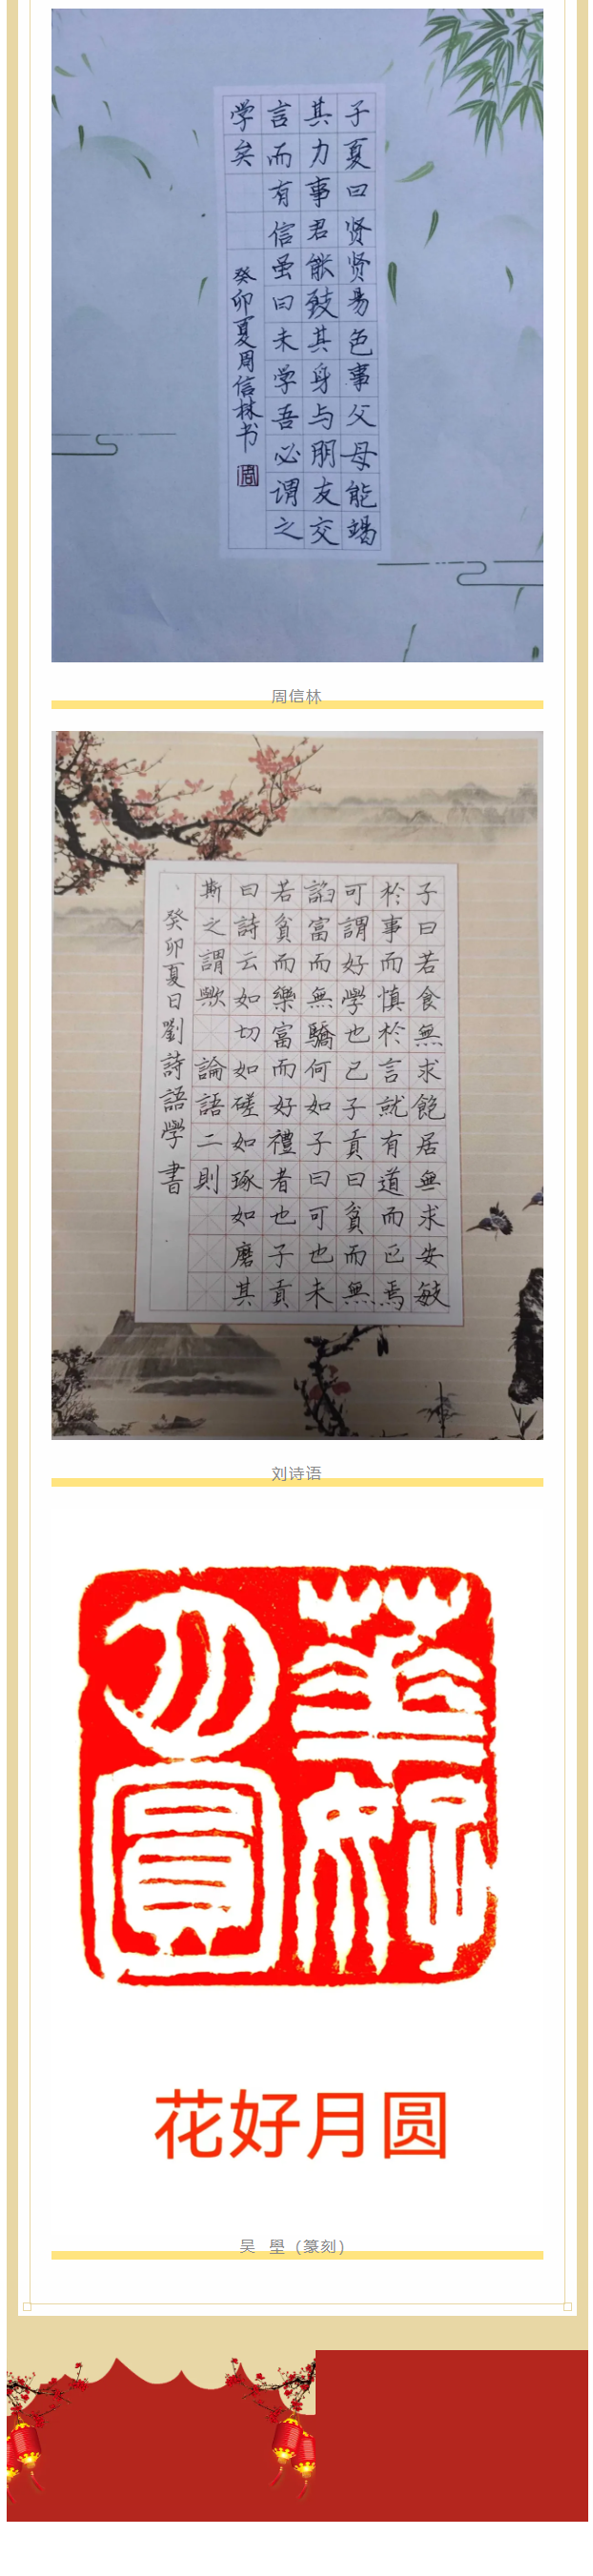 子夏曰贤贤易色事父母能竭
其力事君能致其身与朋友交
言而有信虽曰未学吾必谓之
学矣
癸卯夏周信林书
周
周信林
子曰君食無求飽居無求安敏
於事而慎於言就有道而已焉
可謂好學也已子貢曰貧而無
諂富而無驕何如子曰可也未
若貧而樂富而好禮者也子貢
曰詩云如切如磋如琢如磨其
斯之謂歟 論語二則
癸卯夏日劉詩語學書
刘诗语
華好
月圓
花好月圆
吴 壆（篆刻）